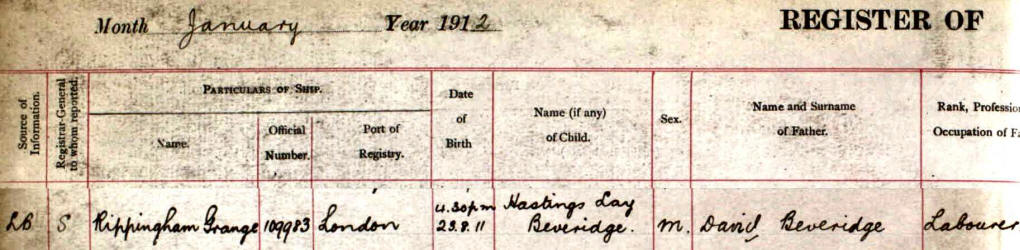 Month January Year 1912 REGISTER OF
Source of Information.
Registrar-General to whom reported.
PARTICULARS OF SHIP.
Name.
Official Number.
Port of Registry.
Date of Birth
Name (if any) of Child.
Sex.
Name and Surname of Father.
Rank, Profession
Occupation of Fa
LB S Rippingham Grange 109983 London 4.30pm 23.8.11 Hastings Lay Beveridge. M. David Beveridge Labourer